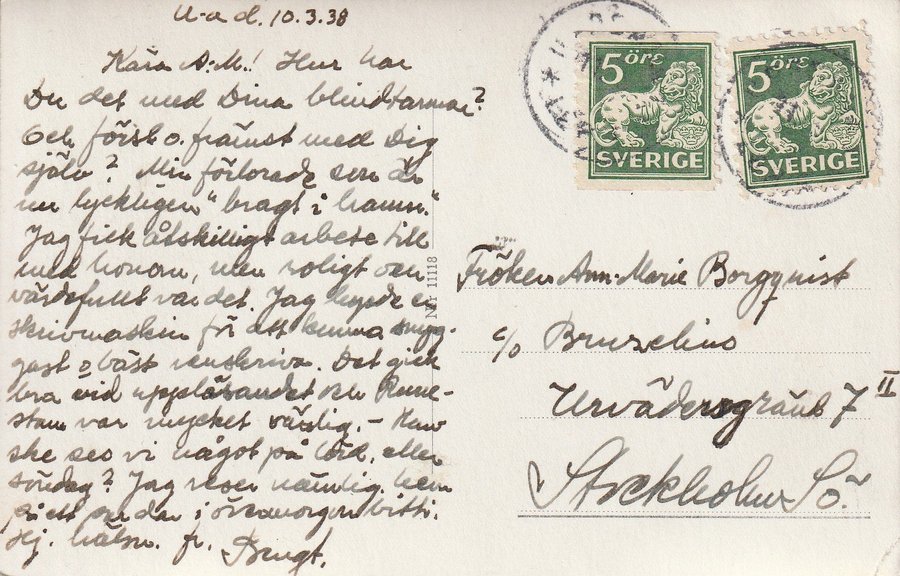 U-a d. 10.3.38
Kära A.M.! Hur har
Du det med Dina blindtarmar?
Och först o. främst med Dig
själv? Min förlorade son är
nu lyckligen "bragt i hamn."
Jag fick åtskilligt arbete till
med honom, men roligt och
värdefullt var det. Jag hyrde en
skrivmaskin för att kunna snyg-
gast o bäst renskriva. Det gick
bra vid uppläsandet och Rune-
stam var mycket vänlig. – Kan-
ske ses vi något på lörd. eller
söndag? Jag reser nämlig. hem
på ett par dar i övermorgon bitti.
Hej. hälsn. fr. Bengt.
NR 11118
5 ÖRE
SVERIGE
5 ÖRE
SVERIGE
Fröken Ann-Marie Borgqvist
c/o Bruzelius
Urvädersgränd 7 II
Stockholm Sö.